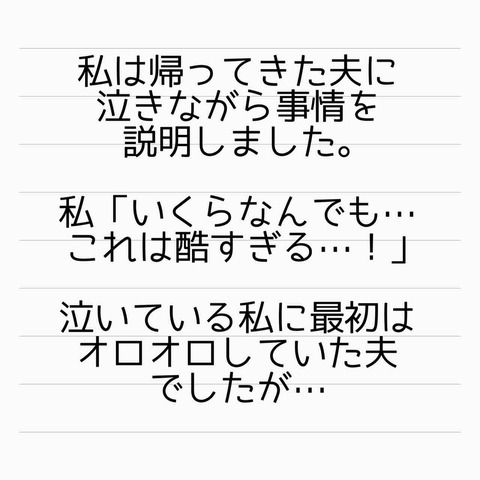 私は帰ってきた夫に
泣きながら事情を
説明しました。
私「いくらなんでも…
これは酷すぎる…！」
泣いている私に最初は
オロオロしていた夫
でしたが…